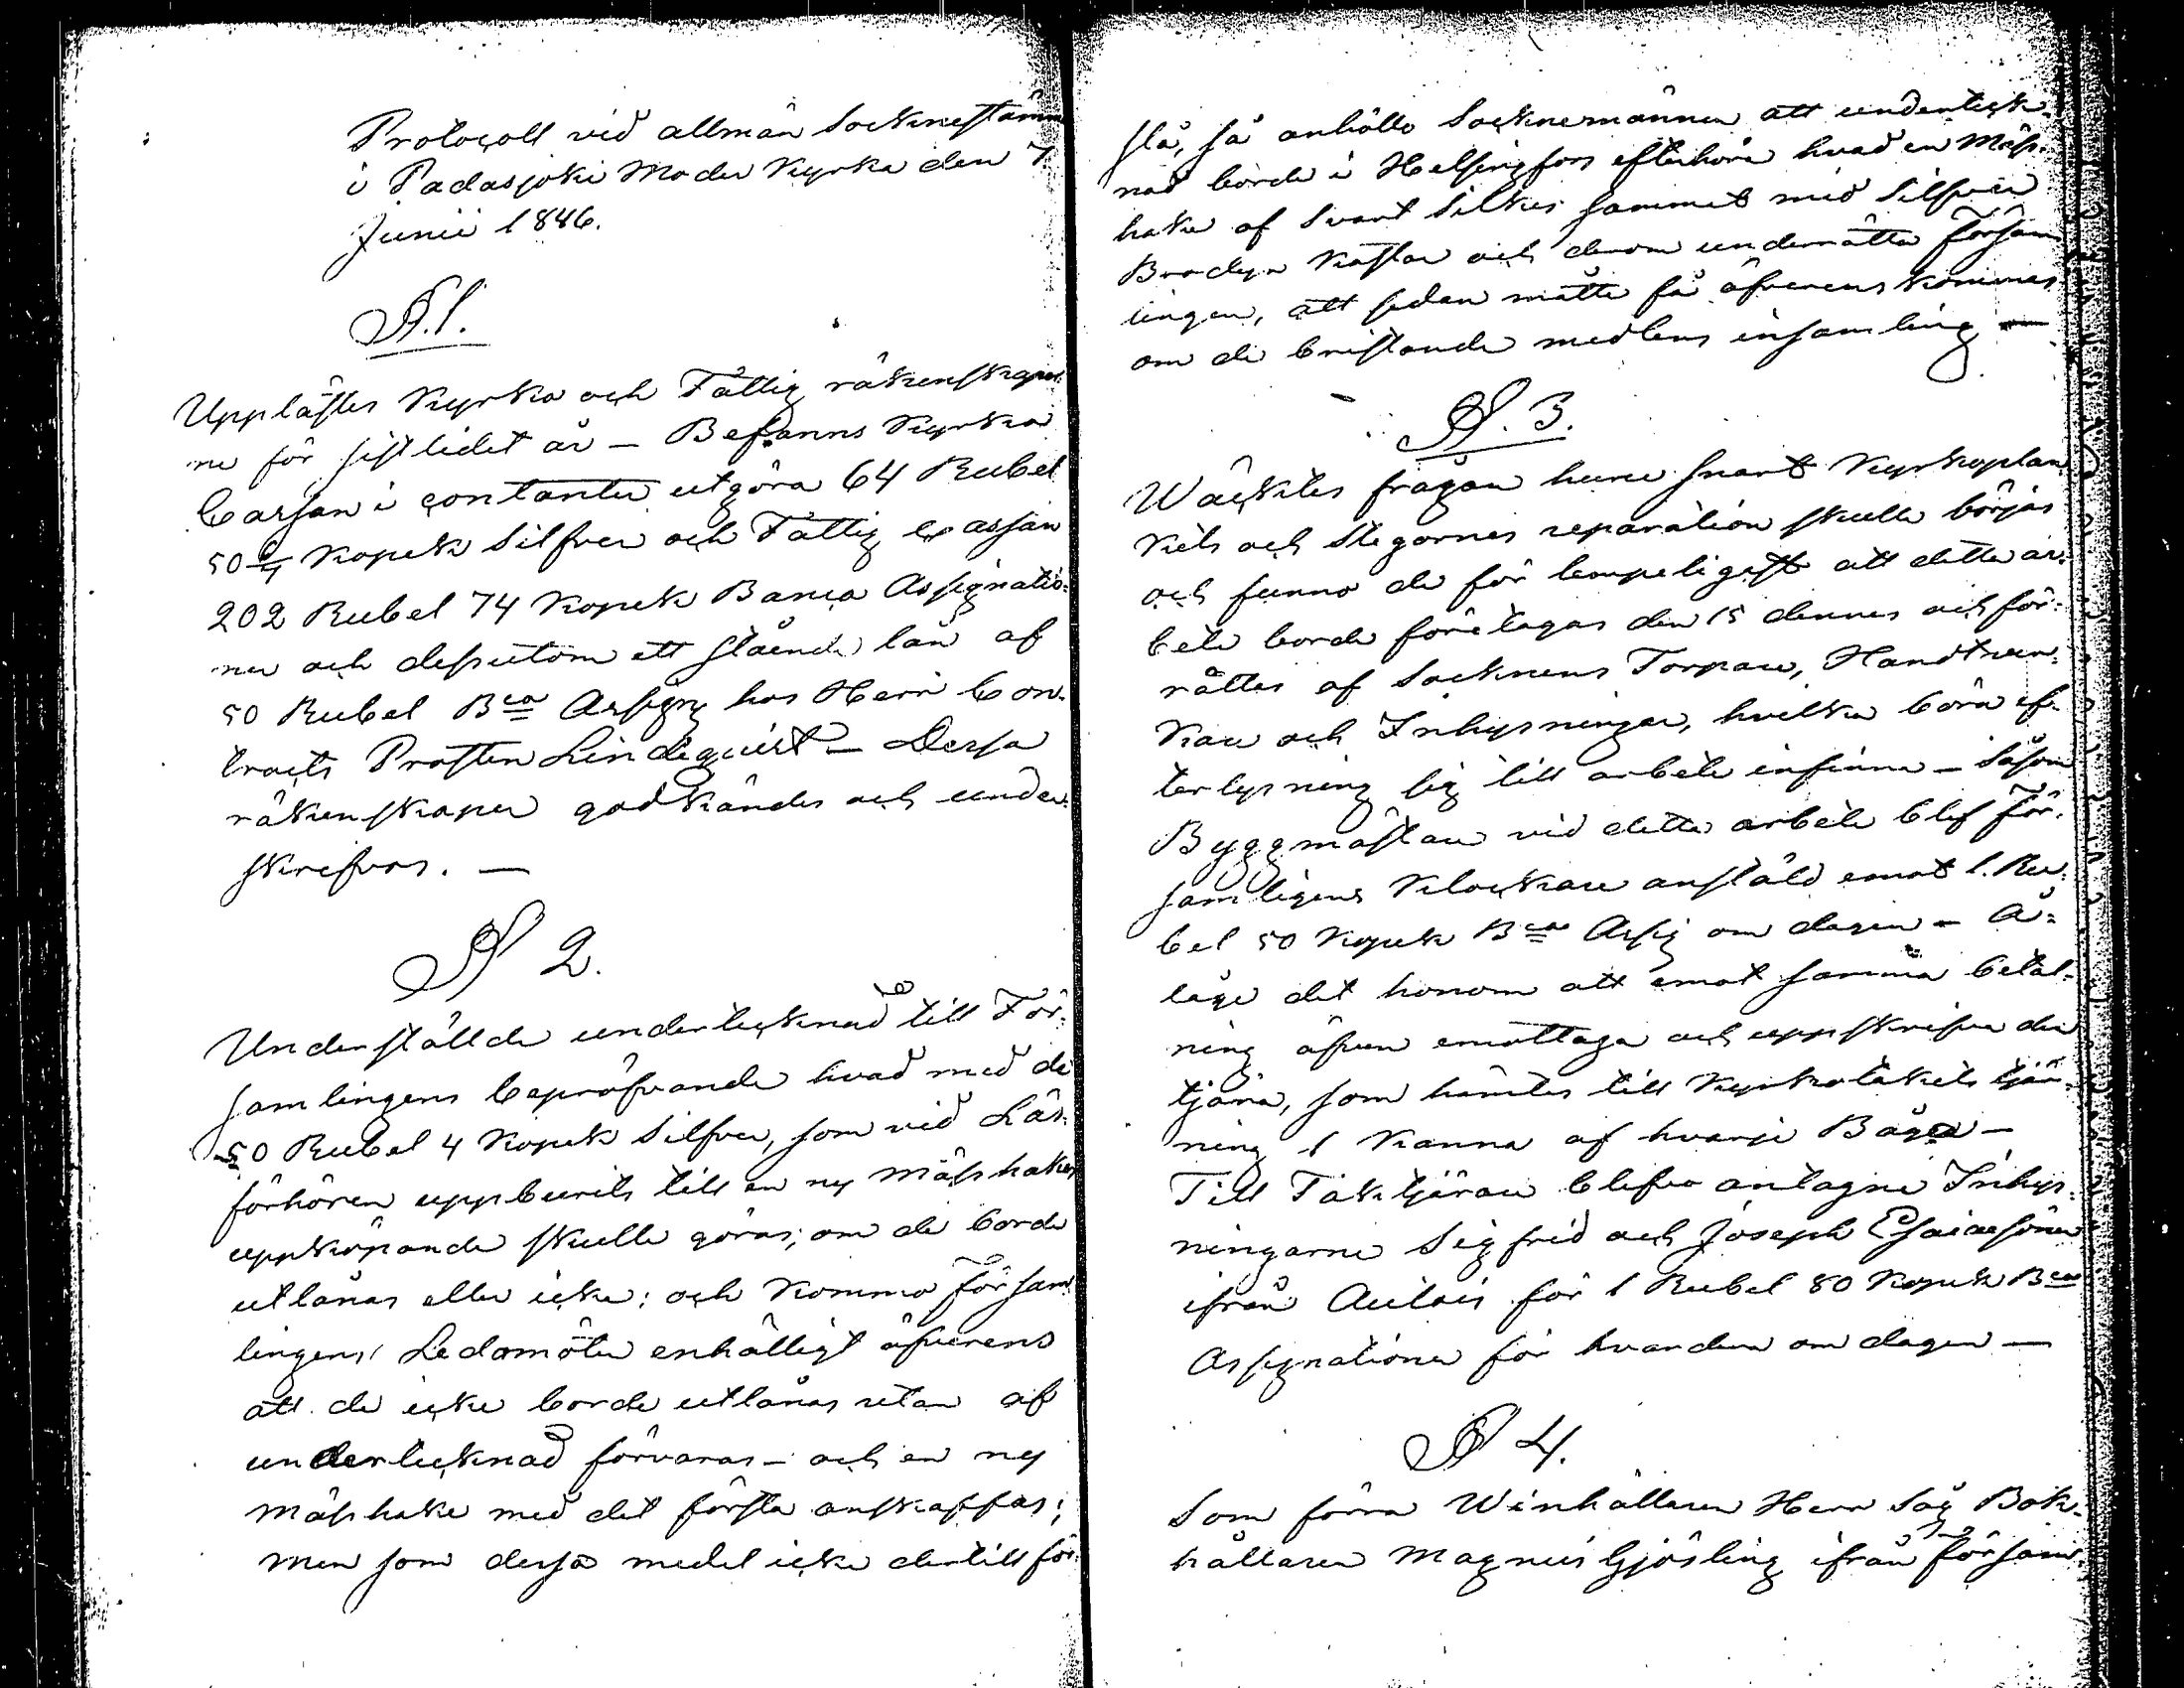 Protocoll vid allmän Socknestämm
i Padasjoki Moder Kyrka den 7
Junii 1846.
§.1.
Upplästes Kyrko och Fattig räkenskaper
ne för sistlidet år – Befanns Kyrko
Cassan i contanter utgöra 64 Rubel
50 Kopek Silfver och Fattig cassan
202 Rubel 74 Kopek Banco Assignatio=
ner och dessutom ett stående lån af
50 Rubel Bco Assign hos Herr Con-
tracts Prosten Lindequist – Dessa
räkenskaper godkändes och under-
skrefvos. –
§ 2.
Underställde undertecknad till För-
samlingens bepröfvande hvad med de
50 Rubel 4 Kopek Silfver, som vid Läs-
förhören uppburits till en ny Mässhakes
uppköpande skulle göras; om de borde
utlånas eller icke; och kommo Försam
lingens Ledamöter enhälligt öfverens
att de icke borde utlånas utan af
undertecknad förvaras – och en ny
Mässhake med det första anskaffas;
Men som dessa medel icke dertill för-
slå, så anhöllo Socknemännen att underteck-
nad borde i Helsingfors efterhöra hvad en Mäss-
hake af Svart Silkes sammet med Silfver
Brodyr kostar och derom underrätta Försam
lingen, att sedan måtte få öfverenskommas
om de bristande medlens insamling –
§. 3.
Wäcktes frågan huru snart Kyrkoplan
kets och Stegarnes reparation skulle börjas
och funno de för lempeligast att detta ar-
bete borde företagas den 15 dennes och för-
rättes af Socknens Torpare, Handtver-
kare och Inhysningar, hvilka böra ef-
terlysning sig till arbete infinna – Såsom
Byggmästare vid detta arbete blef För-
samligens Klockare anställd emot 1. Ru-
bel 50 Kopek Bco Assig om dagen – Å=
låge det honom att emot samma betal-
ning äfven emottaga och uppskrifva den
tjära, som hämtes till Kyrkotakets tjär-
ning 1 Kanna af hvarje Båge –
Till Taktjärare blefvo antagne Inhys-
ningarne Sigfrid och Joseph Esaiæsöner
ifrån Autois för 1 Rubel 80 Kopek Bco
Assignationer för hvardera om dagen –
§ 4.
Som förra Winhållaren Herr Såg Bok-
hållaren Magnus Gjösling ifrån Försam-